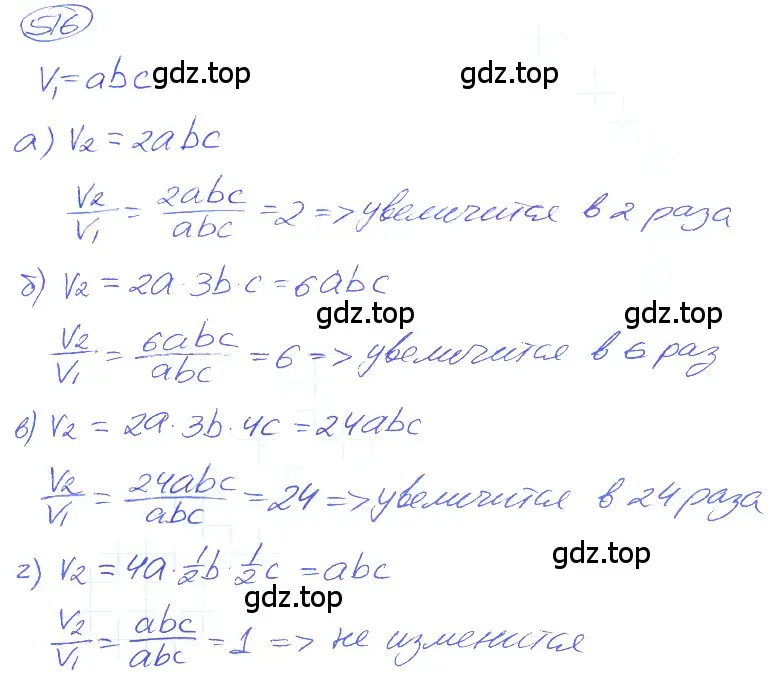 516
V₁=abc
gdz.top gdz.top
а) V₂ = 2abc
V₂/V₁ = 2abc/abc = 2 => увеличится в 2 раза
б) V₂ = 2a·3b·c = 6abc
gdz.top gdz.top
V₂/V₁ = 6abc/abc = 6 => увеличится в 6 раз
в) V₂ = 2a·3b·4c = 24abc
V₂/V₁ = 24abc/abc = 24 => увеличится в 24 раза
gdz.top
г) V₂ = 4a·1/2b·1/2c = abc
gdz.top
V₂/V₁ = abc/abc = 1 => не изменится